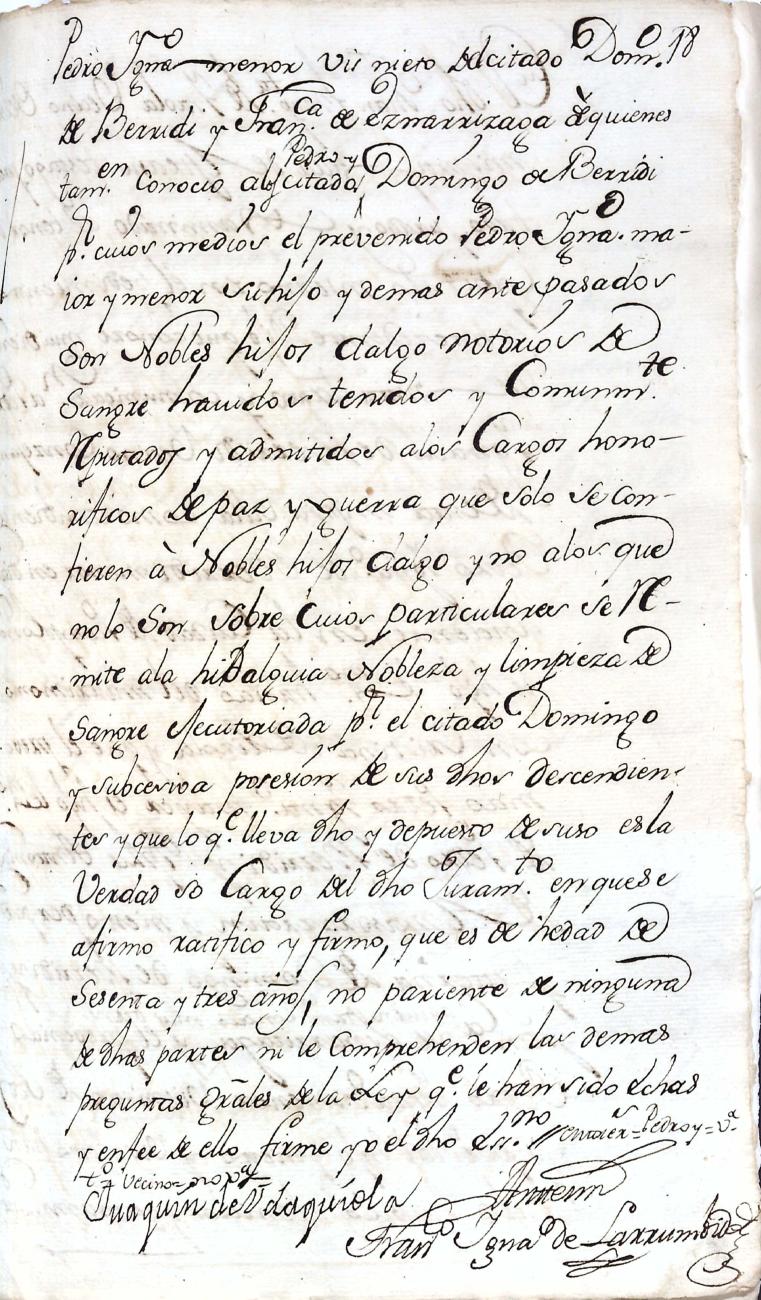 Pedro Ygnᵒ menor vis nieto del citado Domᵒ. 18
de Berridi y Franᶜᵃ. de eznarrizaga de quienes
tamᵉⁿ. Conocio alos citados Pedro y Domingo de Berridi
pʳ. cuios medios el prevenido Pedro Ygnaᵒ. ma-
ior y menor su hijo y demas ante pasados
son Nobles hijos dalgo notorios de
Sangre havidos tenidos y Comunmᵗᵉ.
Reputados y admitidos alos Cargos hono-
rificos de paz y guerra que solo se con-
fieren à Nobles hijos dalgo y no alos que
nolo Son sobre Cuios particulares se Re-
mite ala hidalguia Nobleza y limpieza de
Sangre ejecutoriada pʳ. el citado Domingo
y subcesiva posesion de sus dhos descendien-
tes y que lo qᵉ. lleva dho y depuesto de suso es la
Verdad so Cargo del dho Juramᵗᵒ. en que se
afirmo ratifico y firmo, que es de hedad de
Sesenta y tres años, no pariente de ninguna
de dhas partes ni le Comprehenden las demas
preguntas grales de la Ley qᵉ. le han sido dchas
y enfee de ello firme yo el dho Esⁿᵒ. // entre Rˢ = Pedro y = vᵃ
tᵒ = Vecino =
Juaquin de Vdaquiola Antemi
Franᶜᵒ Ygnaᵒ de Larrumbide